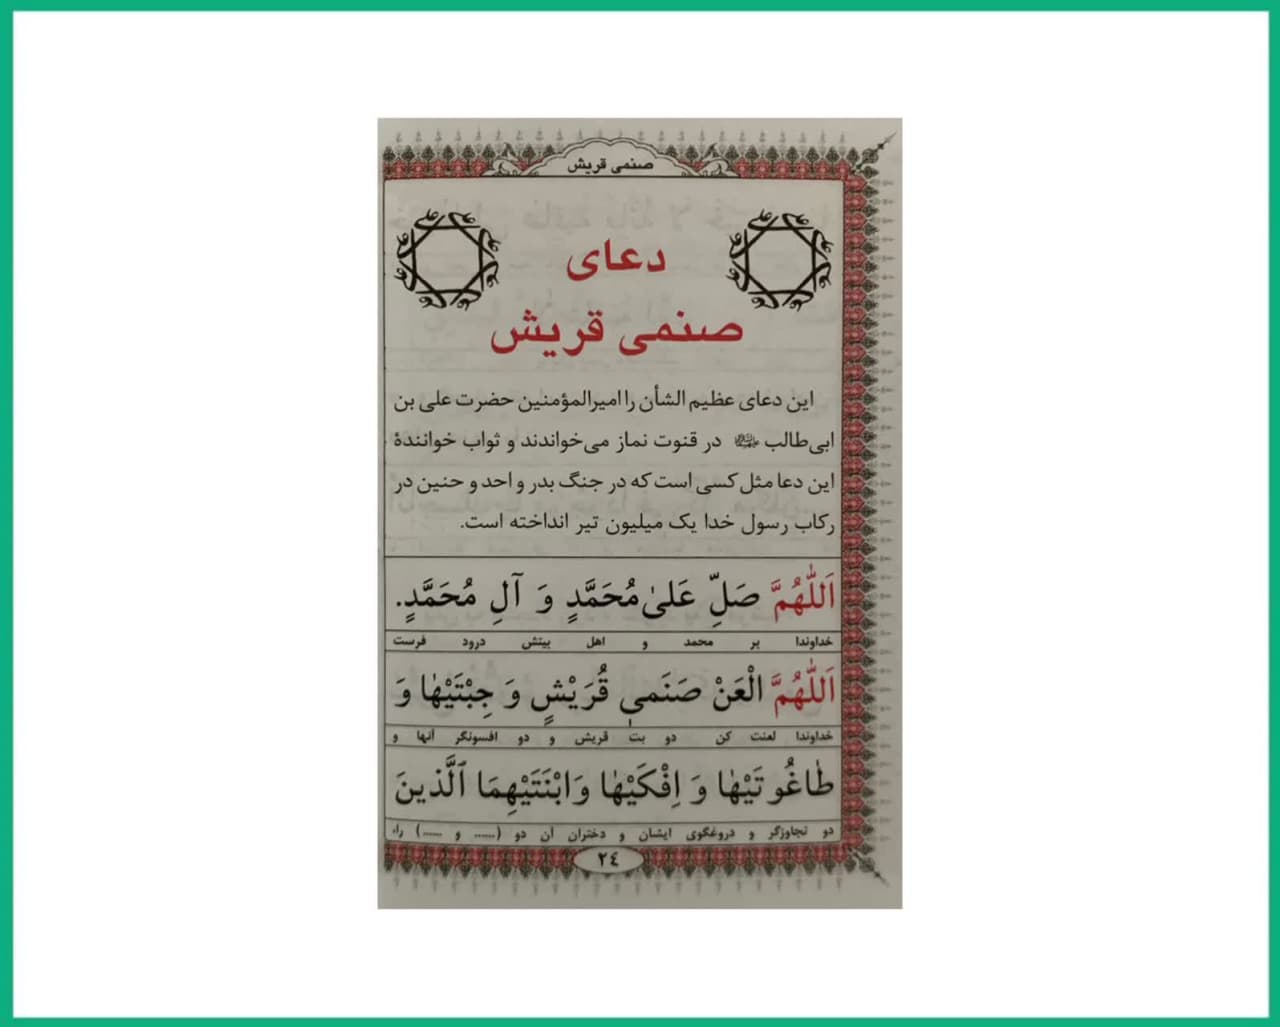 صنمی قریش
دعای
صنمی قریش
این دعای عظیم الشأن را امیرالمؤمنین حضرت علی بن
ابی‌طالب علیه‌السلام در قنوت نماز می‌خواندند و ثواب خوانندهٔ
این دعا مثل کسی است که در جنگ بدر و احد و حنین در
رکاب رسول خدا یک میلیون تیر انداخته است.
اَللّٰهُمَّ صَلِّ عَلیٰ مُحَمَّدٍ وَ آلِ مُحَمَّدٍ.
خداوندا بر محمد و اهل بیتش درود فرست
اَللّٰهُمَّ الْعَنْ صَنَمیْ قُرَیْشٍ وَ جِبْتَیْهٰا وَ
خداوندا لعنت کن دو بت قریش و دو افسونگر آنها و
طٰاغُوتَیْهٰا وَ اِفْکَیْهٰا وَابْنَتَیْهِمَا الَّذینَ
دو تجاوزگر و دروغگوی ایشان و دختران آن دو (...... و ......) را،
٢٤